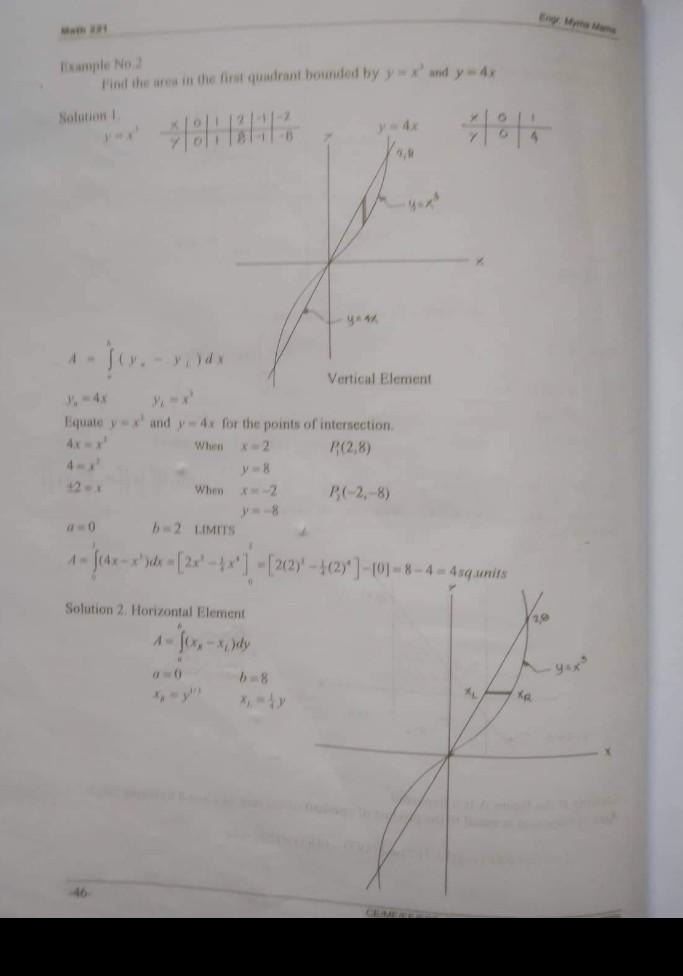 Math 221
Engr. Myrna Mama
Example No.2
Find the area in the first quadrant bounded by y = x³ and y = 4x
Solution 1.
y = x³
x | 0 | 1 | 2 | -1 | -2
y | 0 | 1 | 8 | -1 | -8
x | 0 | 1
y | 0 | 4
y
y = 4x
2,8
y=x³
x
y=4x
Vertical Element
A = ∫ₐᵇ (yᵤ - y_L) dx
yᵤ = 4x y_L = x³
Equate y = x³ and y = 4x for the points of intersection.
4x = x³ When x = 2 P₁(2,8)
4 = x² y = 8
±2 = x When x = -2 P₂(-2,-8)
y = -8
a = 0 b = 2 LIMITS
A = ∫₀²(4x - x³)dx = [2x² - ¼x⁴]₀² = [2(2)² - ¼(2)⁴] - [0] = 8 - 4 = 4sq.units
Solution 2. Horizontal Element
A = ∫ₐᵇ(x_R - x_L)dy
a = 0 b = 8
x_R = y^(1/3) x_L = ¼y
y
2,8
y=x³
x_L x_R
x
-46-